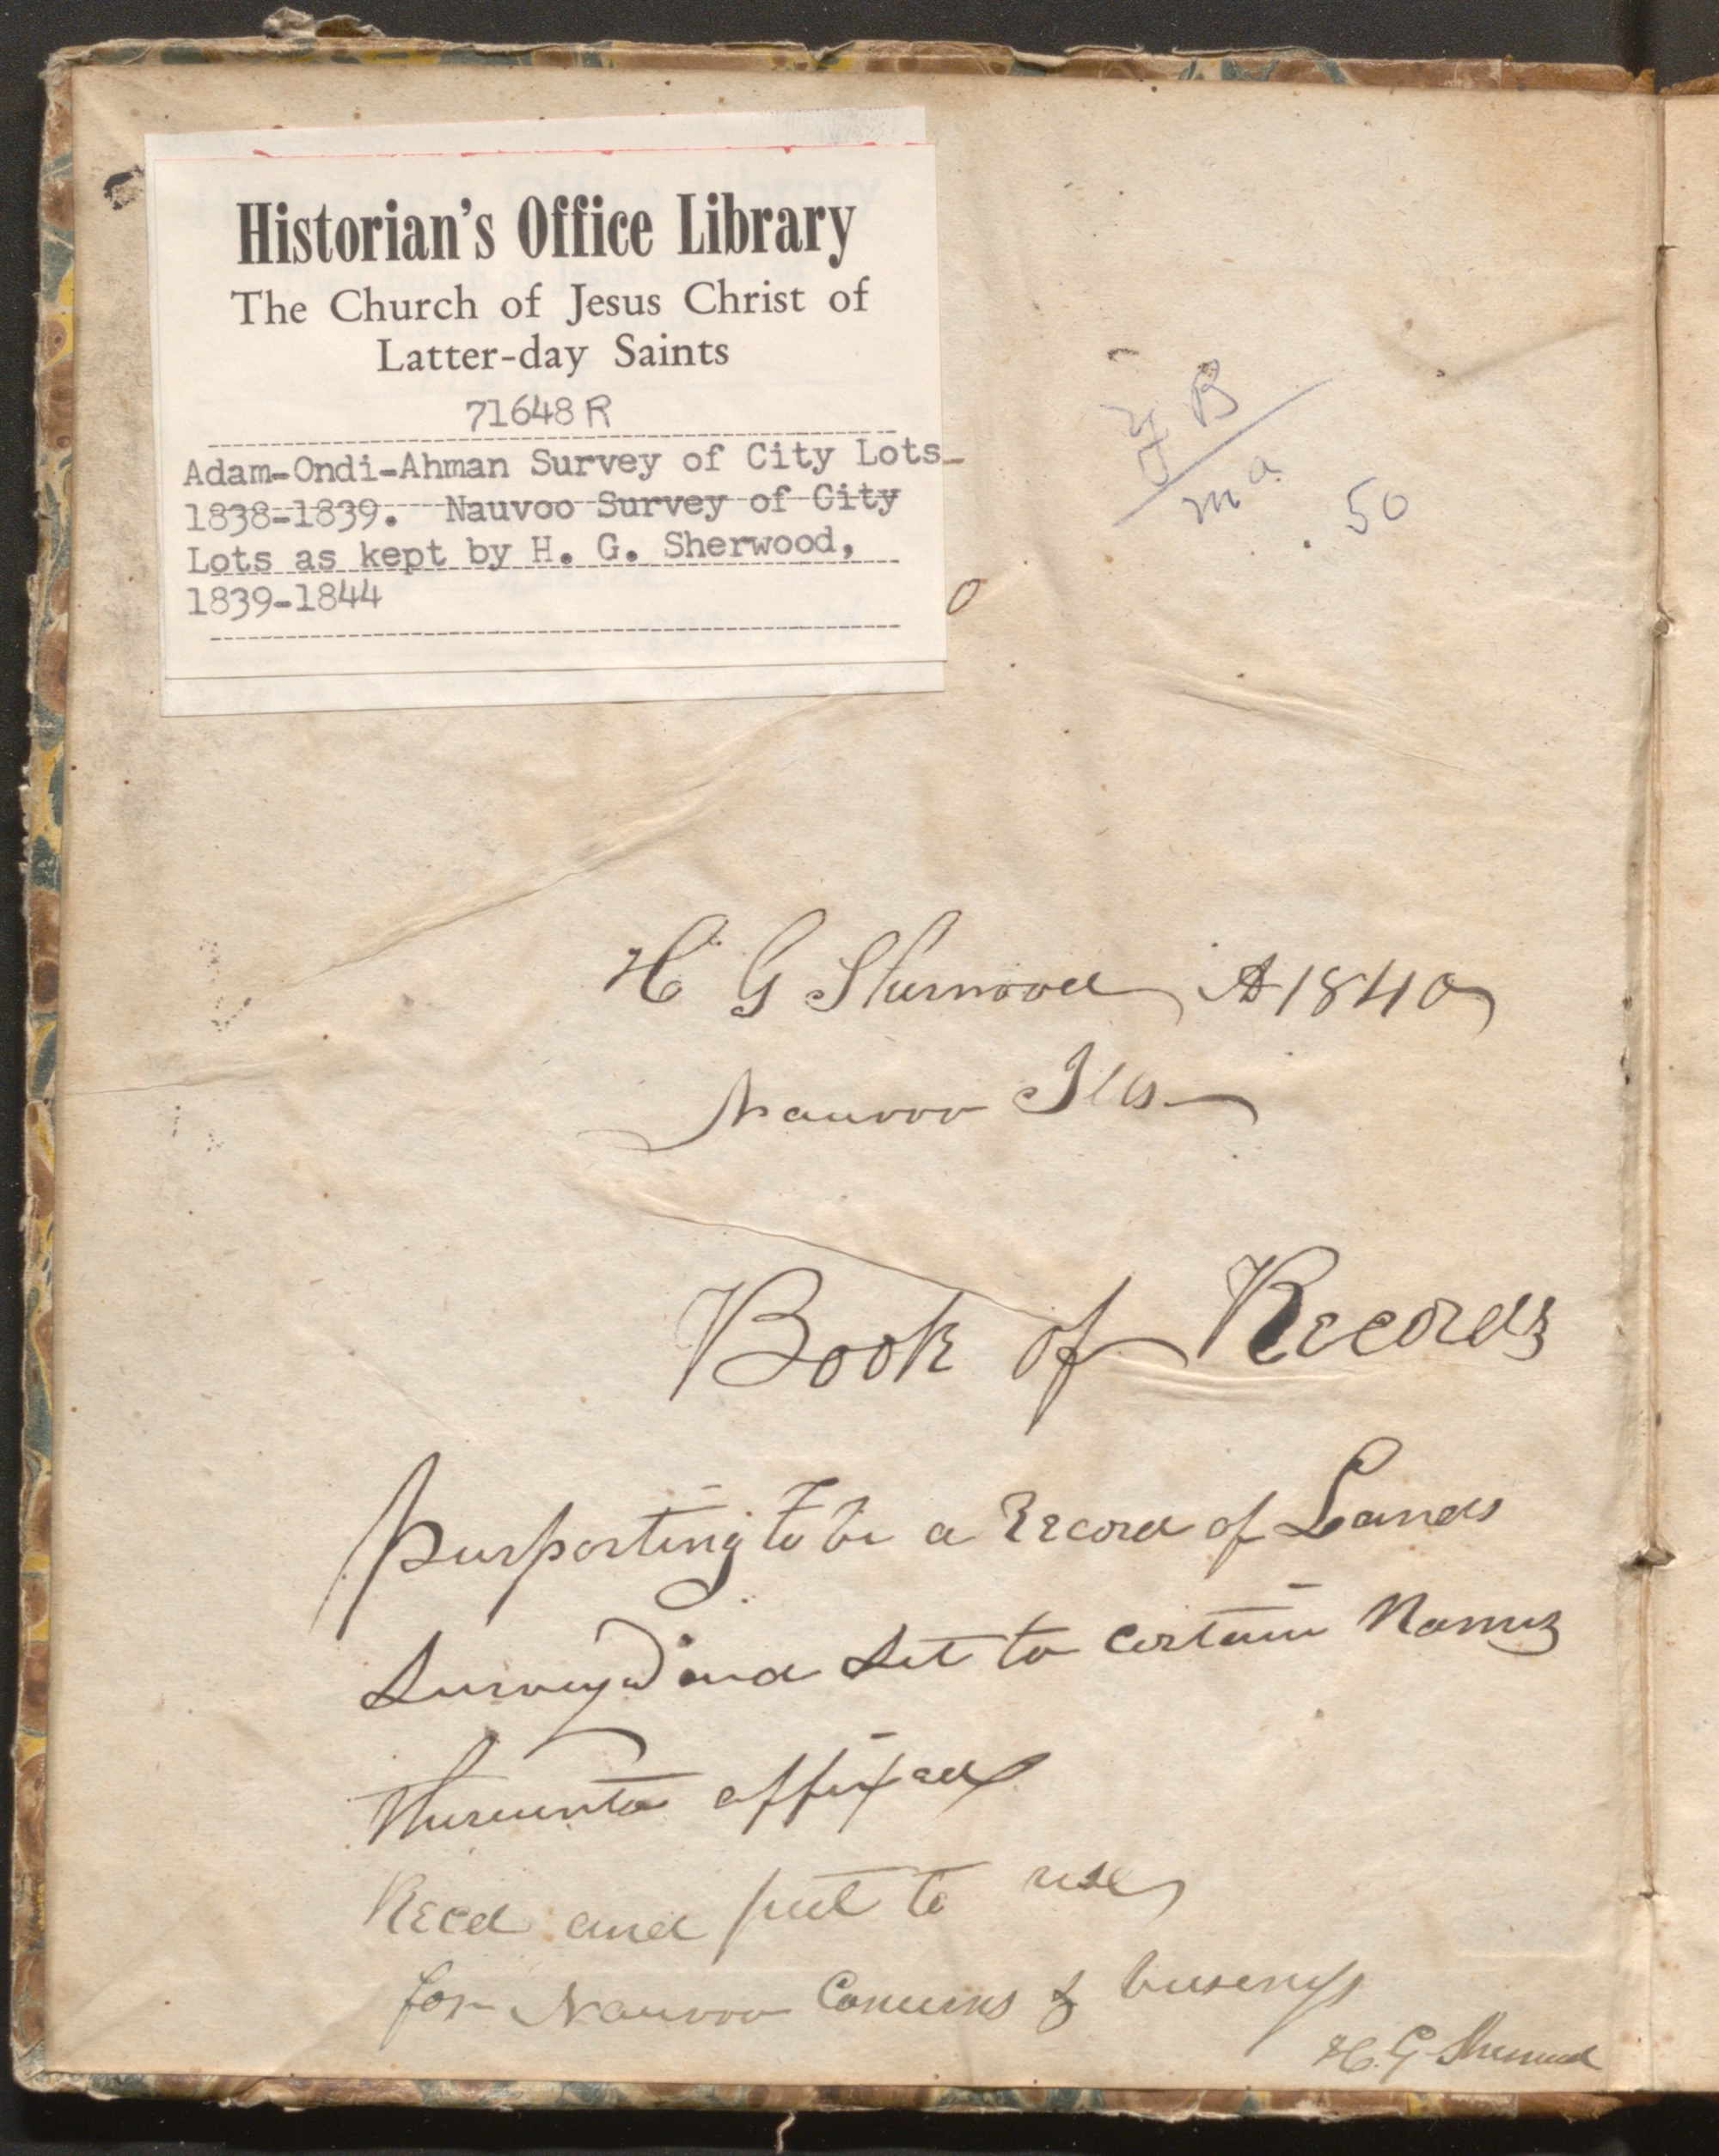 Historian's Office Library
The Church of Jesus Christ of
Latter-day Saints
71648 R
Adam-Ondi-Ahman Survey of City Lots
1838-1839. Nauvoo Survey of City
Lots as kept by H. G. Sherwood,
1839-1844
B
50
H G Sherwood A 1840
Nauvoo Ills
Book of Records
Purporting to be a Record of Lands
Surveyd and Set to Certain Names
thereunto affixed
Recd and put to use
for Nauvoo Concerns & busenyss
H. G Sherwood